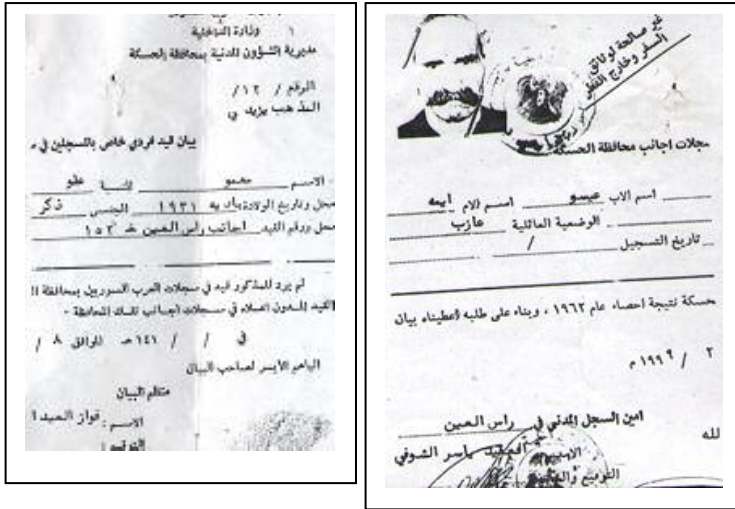 وزارة الداخلية
مديرية الشؤون المدنية بمحافظة الحسكة
الرقم / ١٢ /
المذهب يزيدي
بيان قيد فردي خاص بالمسجلين في
الاسم محمو النسبة علو
محل وتاريخ الولادة ١٩٣١ الجنس ذكر
محل ورقم القيد اجانب رأس العين خـ ١٥٢
لم يرد للمذكور قيد في سجلات العرب السوريين بمحافظة ا
القيد المدون اعلاه في سجلات اجانب تلك المحافظة -
في / / ١٤١ هـ الموافق ٨ /
الباهم الأيسر لصاحب البيان
منظم البيان
الاسم : فواز العبد ا
التوقيع :
غير صالحة لوثائق
السفر وخارج القطر
سجلات اجانب محافظة الحسكة
اسم الاب عيسو اسم الام ايمه
الوضعية العائلية عازب
تاريخ التسجيل /
حسكة نتيجة احصاء عام ١٩٦٢ ، وبناء على طلبه اعطيناه بيان
٢ / ١٩٩٩ م
امين السجل المدني في رأس العين
لله
ياسر الشوفي